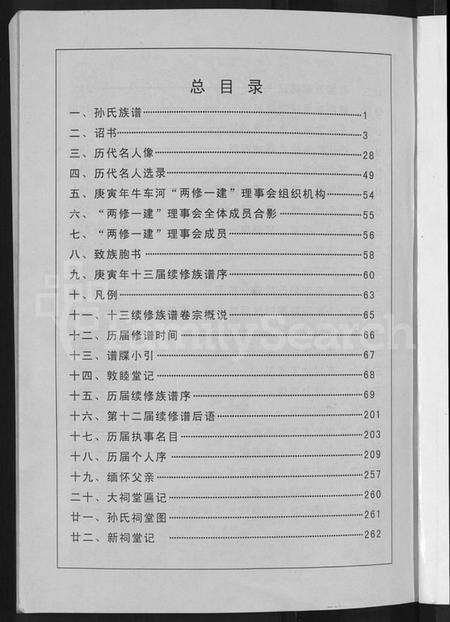 总目录
一、孙氏族谱 1
二、诏书 3
三、历代名人像 28
四、历代名人选录 49
五、庚寅年牛车河“两修一建”理事会组织机构 54
六、“两修一建”理事会全体成员合影 55
七、“两修一建”理事会成员 56
八、致族胞书 58
九、庚寅年十三届续修族谱序 60
十、凡例 63
十一、十三续修族谱卷宗概说 65
十二、历届修谱时间 66
十三、谱牒小引 67
十四、敦睦堂记 68
十五、历届续修族谱序 69
十六、第十二届续修谱后语 201
十七、历届执事名目 203
十八、历届个人序 209
十九、缅怀父亲 257
二十、大祠堂匾记 260
廿一、孙氏祠堂图 261
廿二、新祠堂记 262